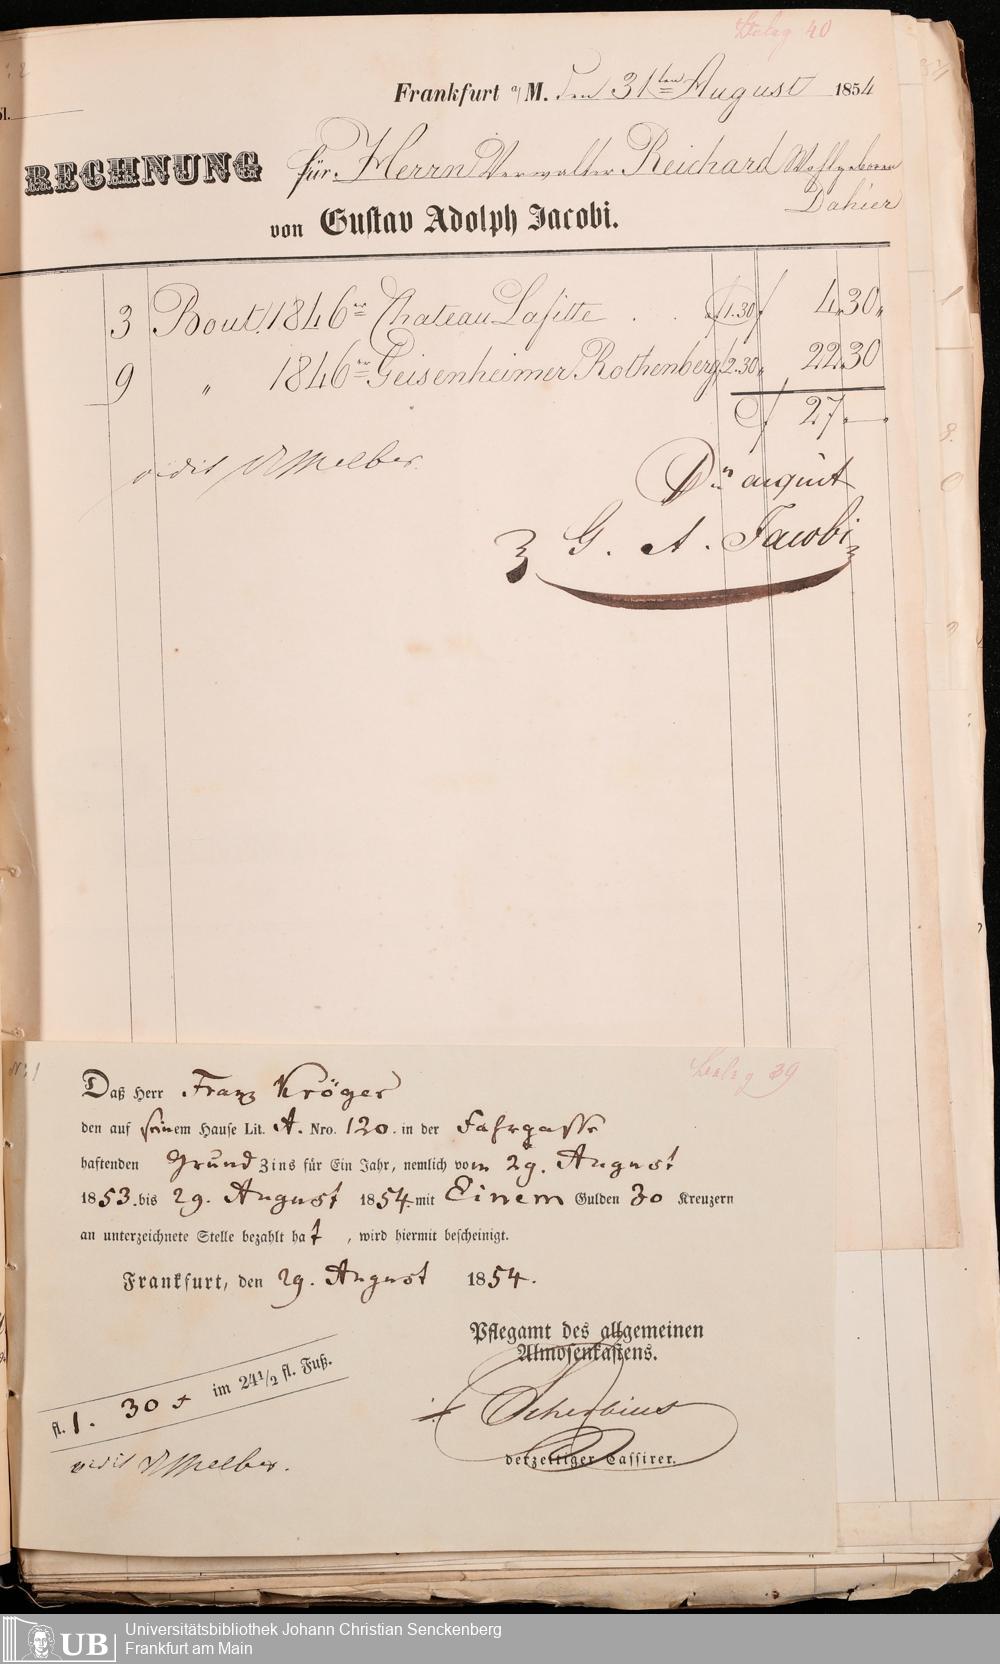 Beleg 40
Frankfurt a/M. den 31ten August 1854
RECHNUNG für Herrn Verwalter Reichard Wohlgeboren
Dahier
von Gustav Adolph Jacobi.
3 Bout. 1846er Chateau Lafitte . . f 1.30 f 4.30.
9 " 1846er Geisenheimer Rothenberg f 2.30 22.30
f 27.—.
vidit Dr Melber.
Dn acquit
G. A. Jacobi
No: 1
Beleg 39
Daß Herr Franz Kröger
den auf seinem Hause Lit. A. Nro. 120. in der Fahrgasse
haftenden Grund Zins für Ein Jahr, nemlich vom 29. August
1853. bis 29. August 1854. mit Einem Gulden 30 Kreuzern
an unterzeichnete Stelle bezahlt hat , wird hiermit bescheinigt.
Frankfurt, den 29. August 1854.
Pflegamt des allgemeinen
Almosenkastens.
fl. 1. 30 x im 24 1/2 fl. Fuß.
Scherbius
derzeitiger Cassirer.
vidit Dr Melber.
UB
Universitätsbibliothek Johann Christian Senckenberg
Frankfurt am Main